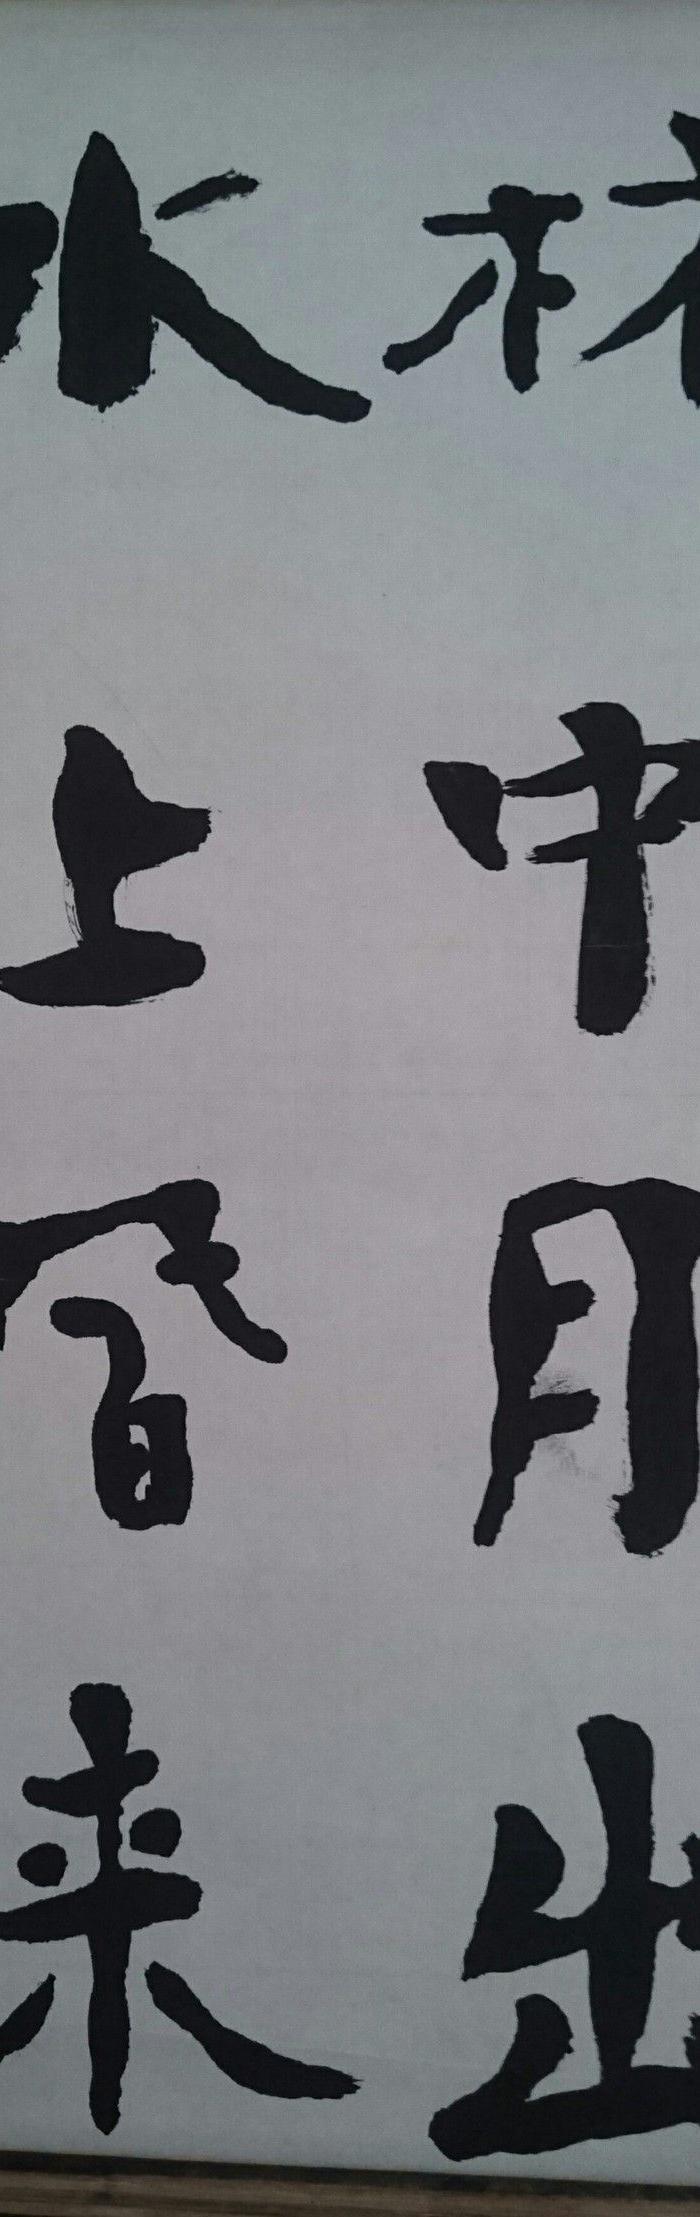 林中月出
水上春来